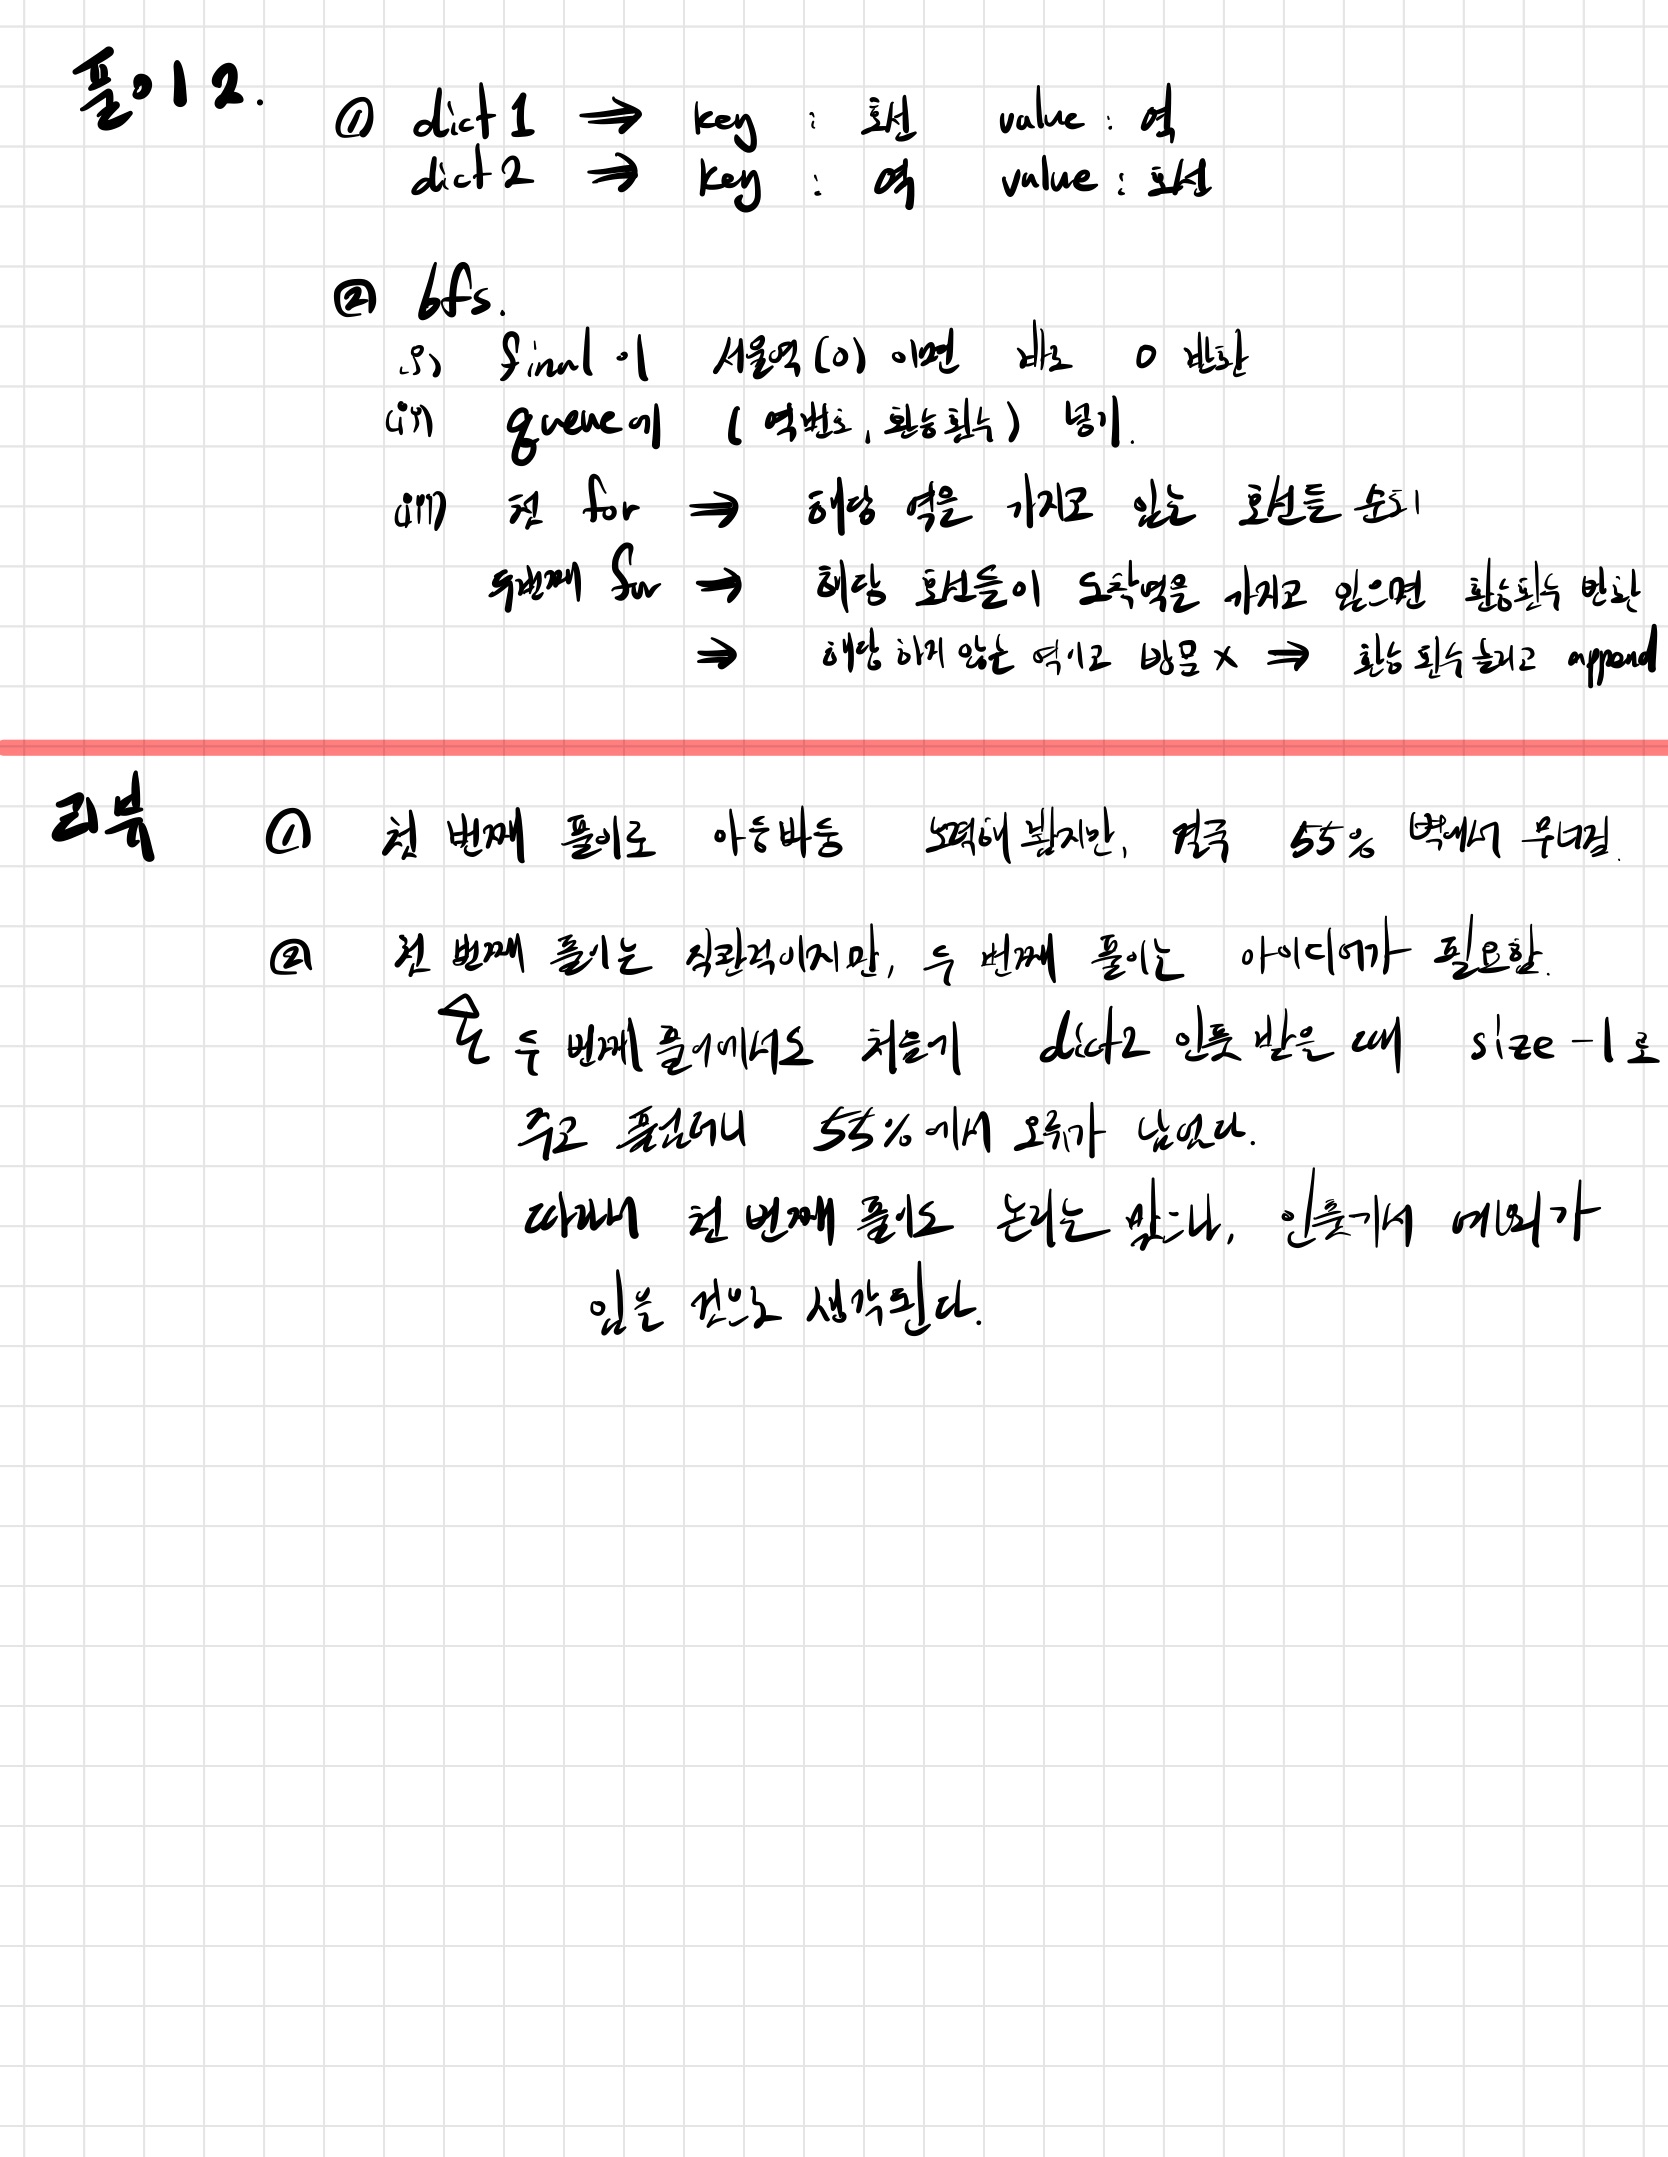 풀이 2.
① dict 1 ⇒ key : 호선 value : 역
dict 2 ⇒ key : 역 value : 호선
② bfs.
(i) final 이 서울역(0) 이면 바로 0 반환
(ii) queue에 (역번호, 환승횟수) 넣기.
(iii) 첫 for ⇒ 해당 역을 가지고 있는 호선들 순회
두번째 for ⇒ 해당 호선들이 도착역을 가지고 있으면 환승횟수 반환
⇒ 해당 하지 않는 역이고 방문 x ⇒ 환승 횟수 늘리고 append
리뷰 ① 첫 번째 풀이로 아등바등 노력해 봤지만, 결국 55% 벽에서 무너짐.
② 첫 번째 풀이는 직관적이지만, 두 번째 풀이는 아이디어가 필요함.
두 번째 풀이에서도 처음에 dict2 인풋 받을 때 size - 1 로
주고 풀었더니 55%에서 오류가 났었다.
따라서 첫 번째 풀이도 논리는 맞으나, 인풋에서 예외가
있을 것으로 생각된다.